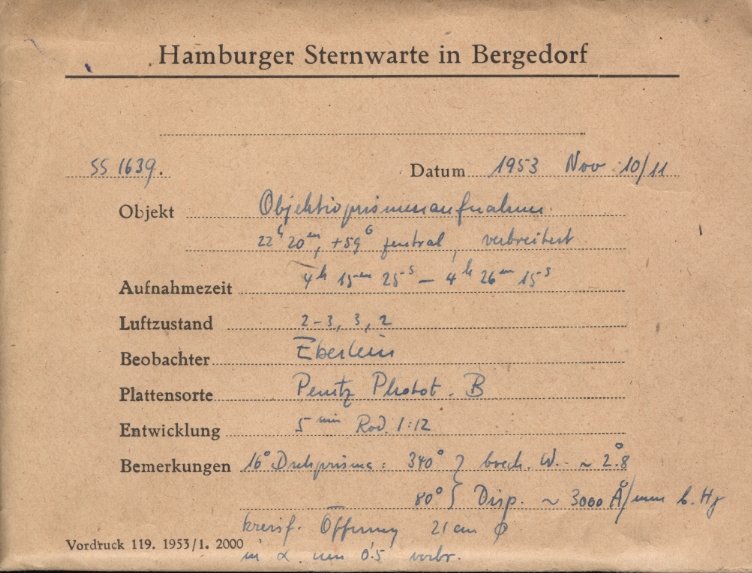 Hamburger Sternwarte in Bergedorf
SS 1639. Datum 1953 Nov 10/11
Objekt Objektivprismenaufnahme
22h 20m, +59° zentral, verbreitert
Aufnahmezeit 4h 15m 25s – 4h 26m 15s
Luftzustand 2–3, 3, 2
Beobachter Eberlein
Plattensorte Perutz Phot. B
Entwicklung 5 min Rod. 1:12
Bemerkungen 16° Drehprisma: 340° } brech. W. ~ 2°.8
80° } Disp. ~ 3000 Å/mm b. Hγ
kreisf. Öffnung 21 cm φ
Vordruck 119. 1953/1. 2000
in α um 0.5 verbr.